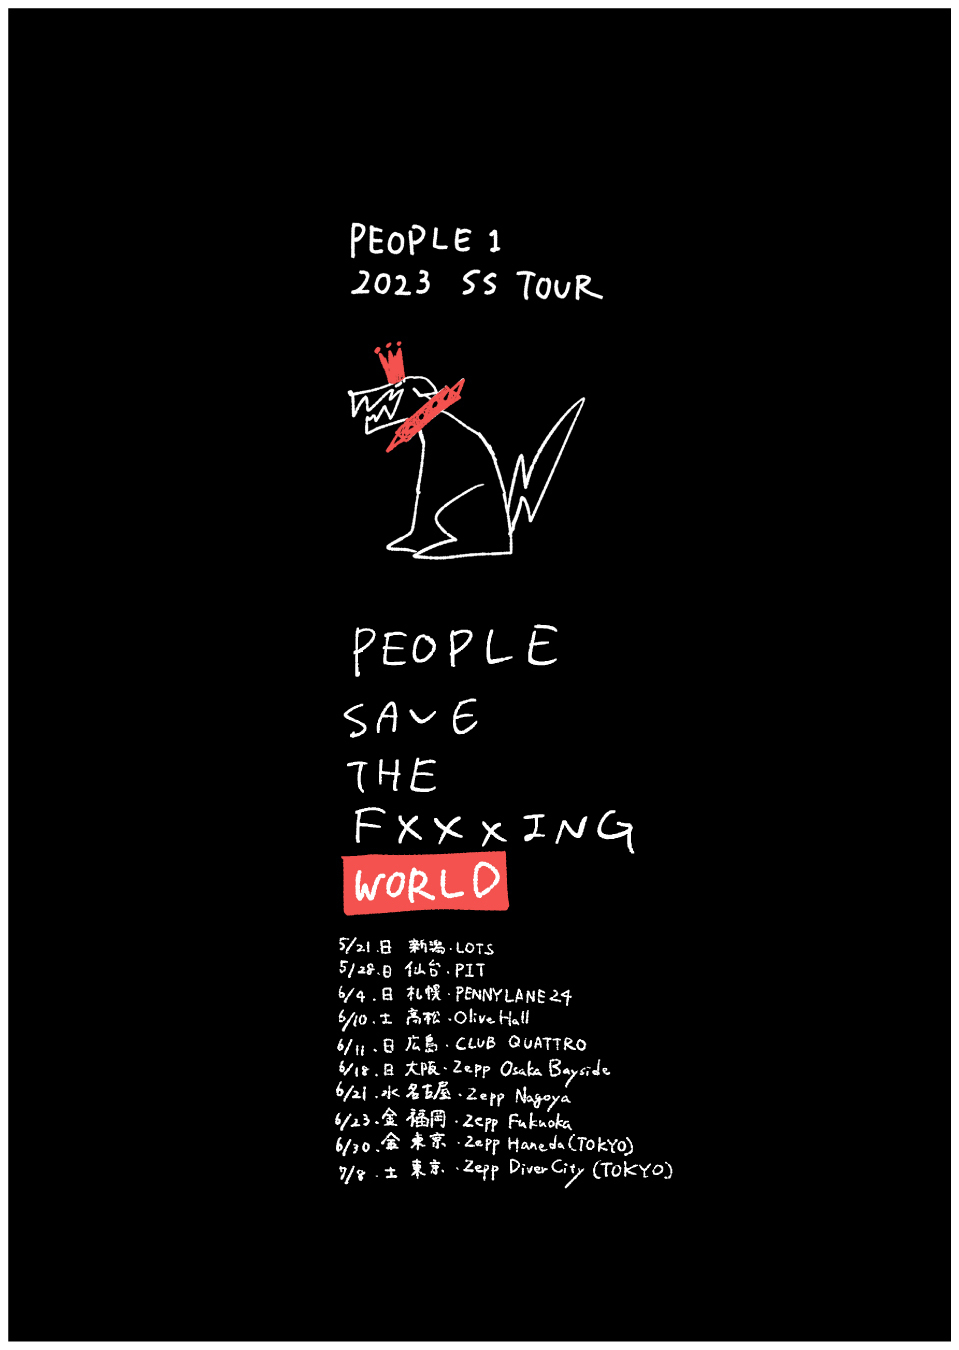 PEOPLE 1
2023 SS TOUR
PEOPLE
SAVE
THE
FXXXING
WORLD
5/21.日 新潟・LOTS
5/28.日 仙台・PIT
6/4.日 札幌・PENNYLANE24
6/10.土 高松・Olive Hall
6/11.日 広島・CLUB QUATTRO
6/18.日 大阪・Zepp Osaka Bayside
6/21.水 名古屋・Zepp Nagoya
6/23.金 福岡・Zepp Fukuoka
6/30.金 東京・Zepp Haneda(TOKYO)
7/8.土 東京・Zepp DiverCity (TOKYO)